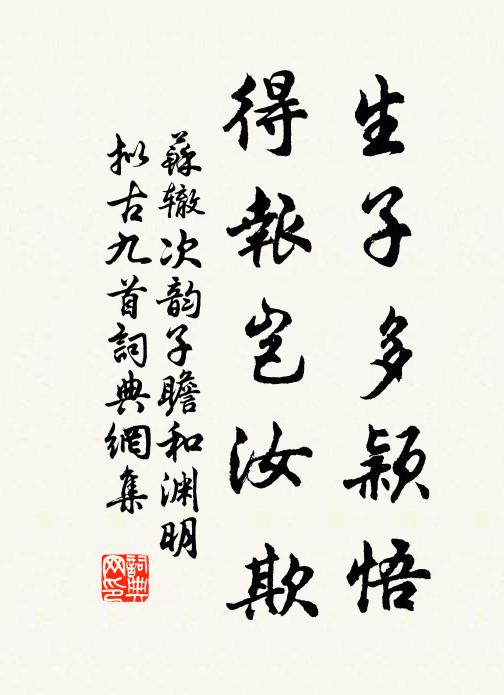 生子多颖悟
得報岂汝欺
蘇辙次韵子瞻和渊明
拟古九首詞典網集
詞典
网印